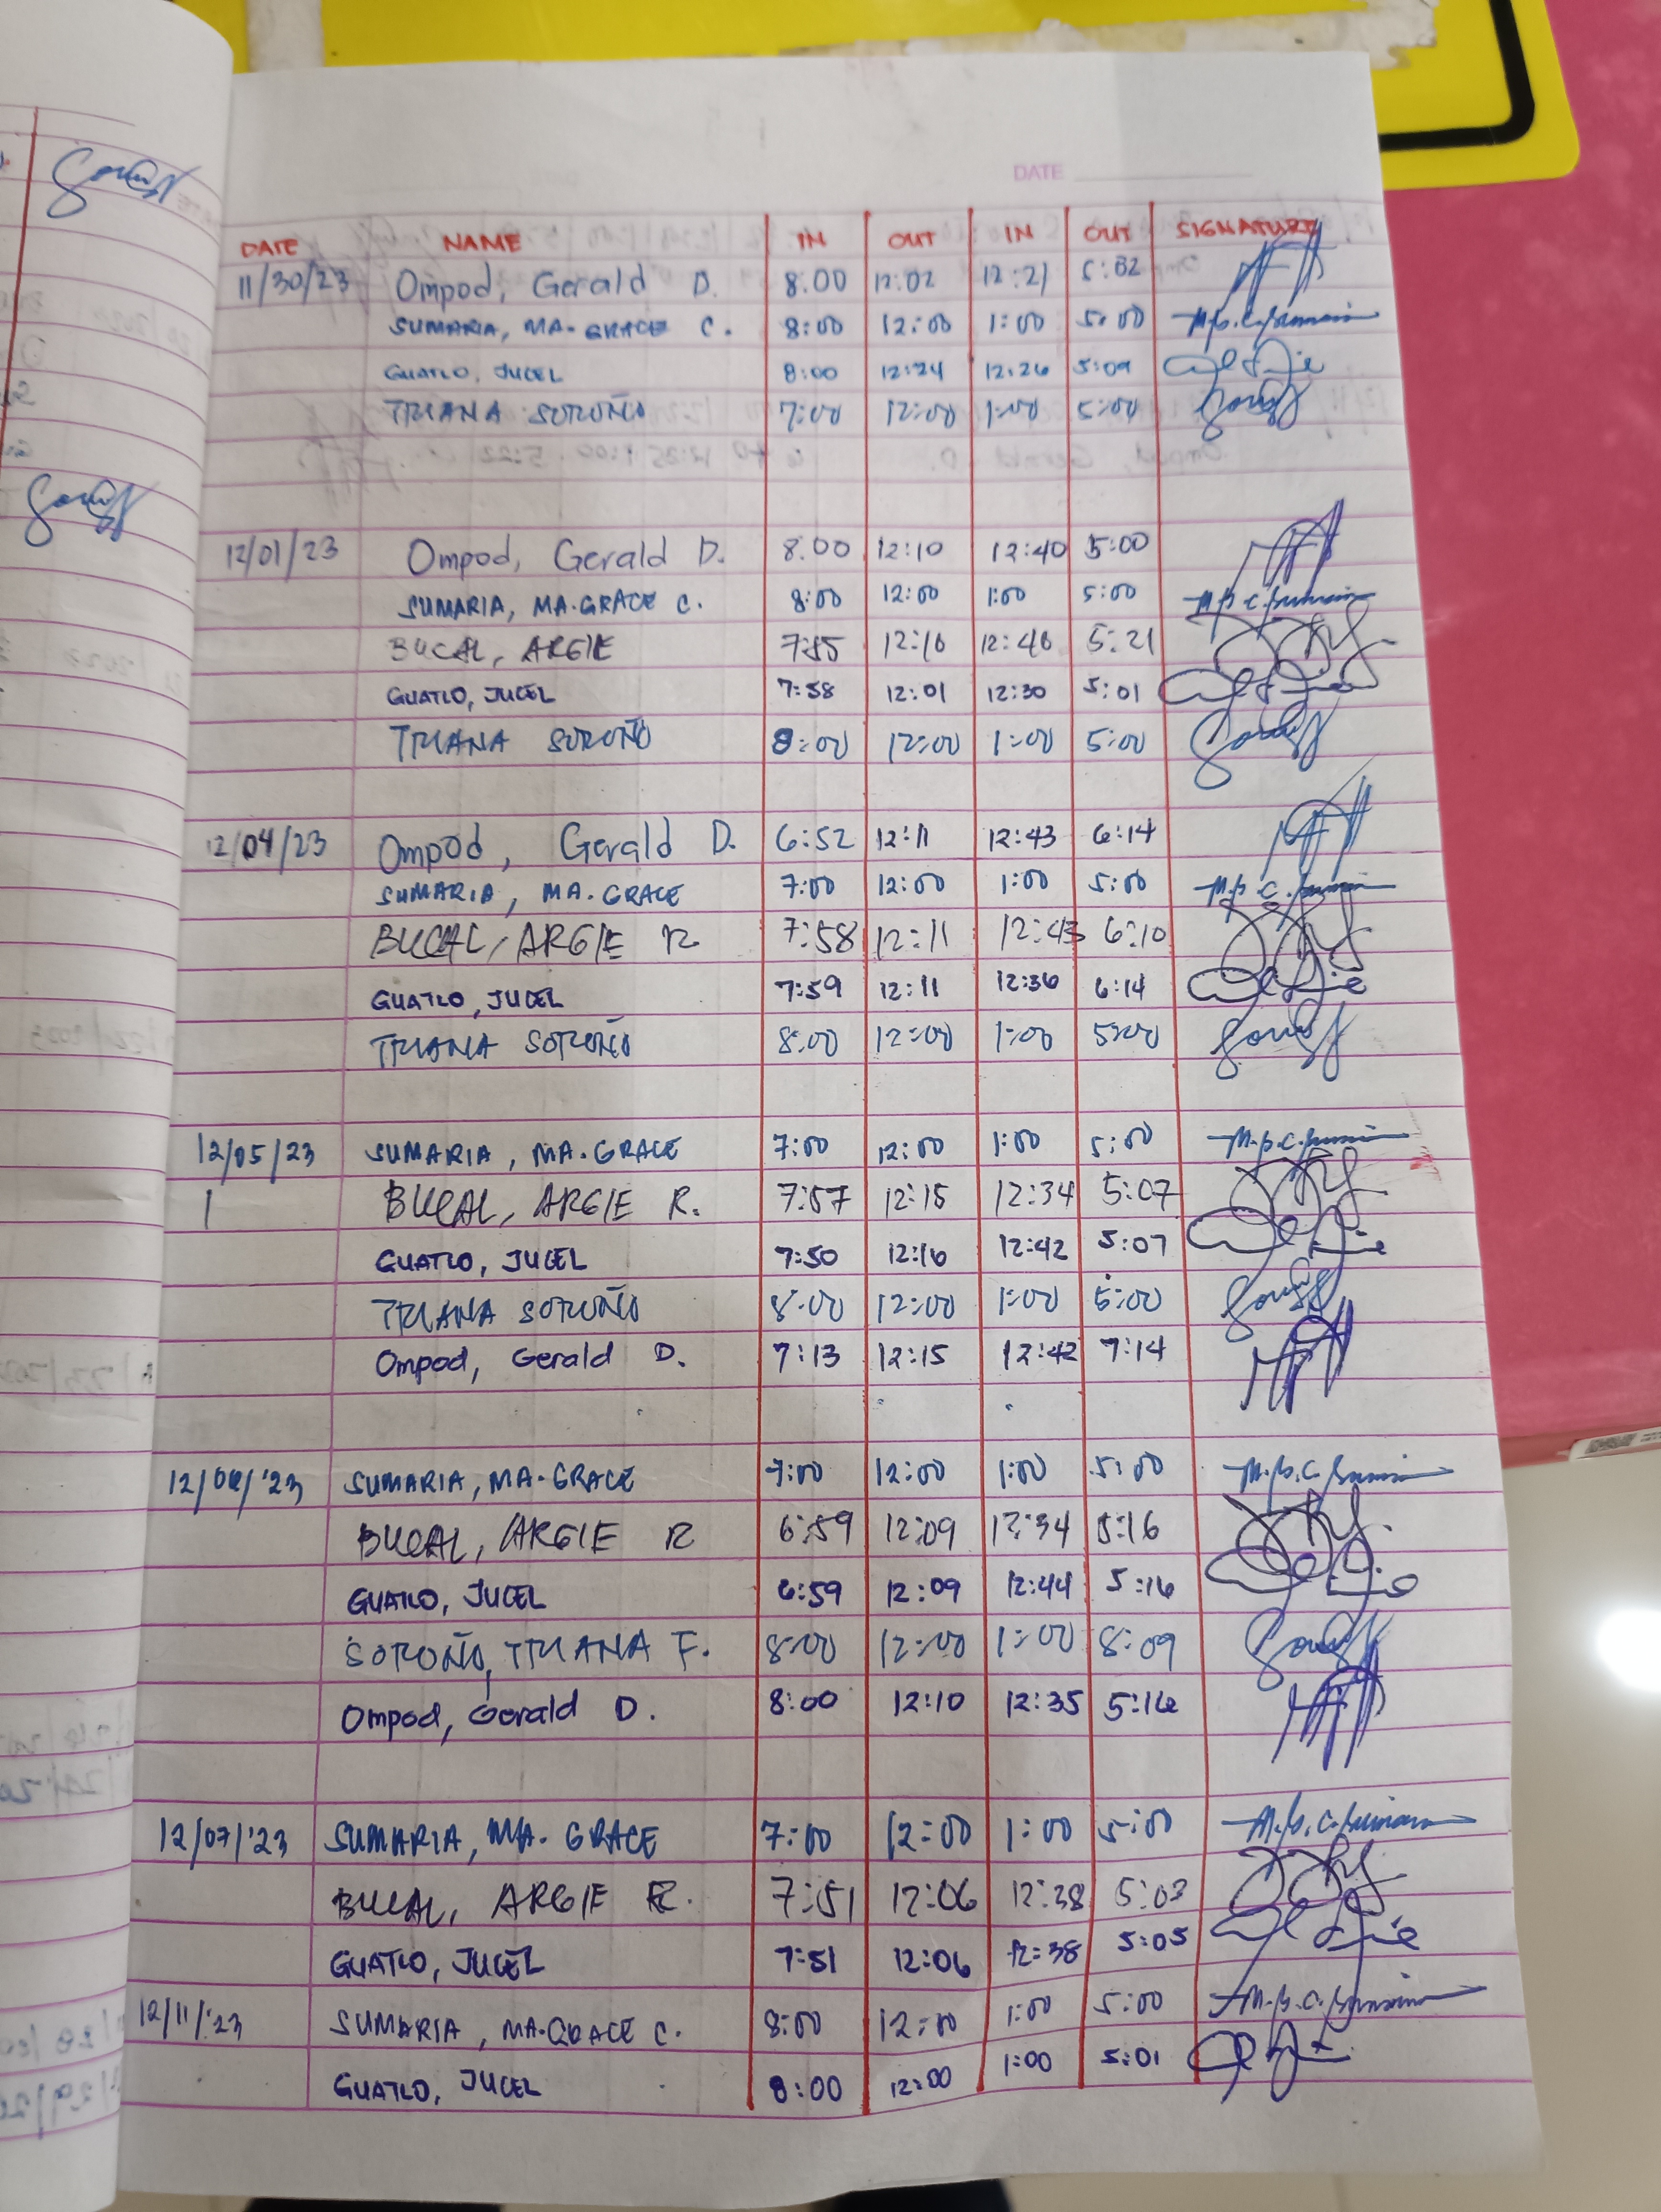 DATE
DATE NAME IN OUT IN OUT SIGNATURE
11/30/23 Ompod, Gerald D. 8:00 12:02 12:21 5:02
SUMARIA, MA. GRACE C. 8:00 12:00 1:00 5:00
GUATLO, JUCEL 8:00 12:24 12:26 5:09
TRIANA SOROÑO 7:00 12:00 1:00 5:00
12/01/23 Ompod, Gerald D. 8:00 12:10 12:40 5:00
SUMARIA, MA. GRACE C. 8:00 12:00 1:00 5:00
BUCAL, ARGIE 7:55 12:10 12:40 5:21
GUATLO, JUCEL 7:58 12:01 12:30 5:01
TRIANA SOROÑO 8:00 12:00 1:00 5:00
12/04/23 Ompod, Gerald D. 6:52 12:11 12:43 6:14
SUMARIA, MA. GRACE 7:00 12:00 1:00 5:00
BUCAL, ARGIE R 7:58 12:11 12:43 6:10
GUATLO, JUCEL 7:59 12:11 12:36 6:14
TRIANA SOROÑO 8:00 12:00 1:00 5:00
12/05/23 SUMARIA, MA. GRACE 7:00 12:00 1:00 5:00
BUCAL, ARGIE R. 7:57 12:15 12:34 5:07
GUATLO, JUCEL 7:50 12:16 12:42 5:07
TRIANA SOROÑO 8:00 12:00 1:00 5:00
Ompod, Gerald D. 7:13 12:15 12:42 7:14
12/06/'23 SUMARIA, MA. GRACE 7:00 12:00 1:00 5:00
BUCAL, ARGIE R 6:59 12:09 12:34 5:16
GUATLO, JUCEL 6:59 12:09 12:44 5:16
SOROÑO, TRIANA F. 8:00 12:00 1:00 8:09
Ompod, Gerald D. 8:00 12:10 12:35 5:16
12/07/'23 SUMARIA, MA. GRACE 7:00 12:00 1:00 5:00
BUCAL, ARGIE R. 7:51 12:06 12:38 5:03
GUATLO, JUCEL 7:51 12:06 12:38 5:05
12/11/'23 SUMARIA, MA. GRACE C. 8:00 12:00 1:00 5:00
GUATLO, JUCEL 8:00 12:00 1:00 5:01